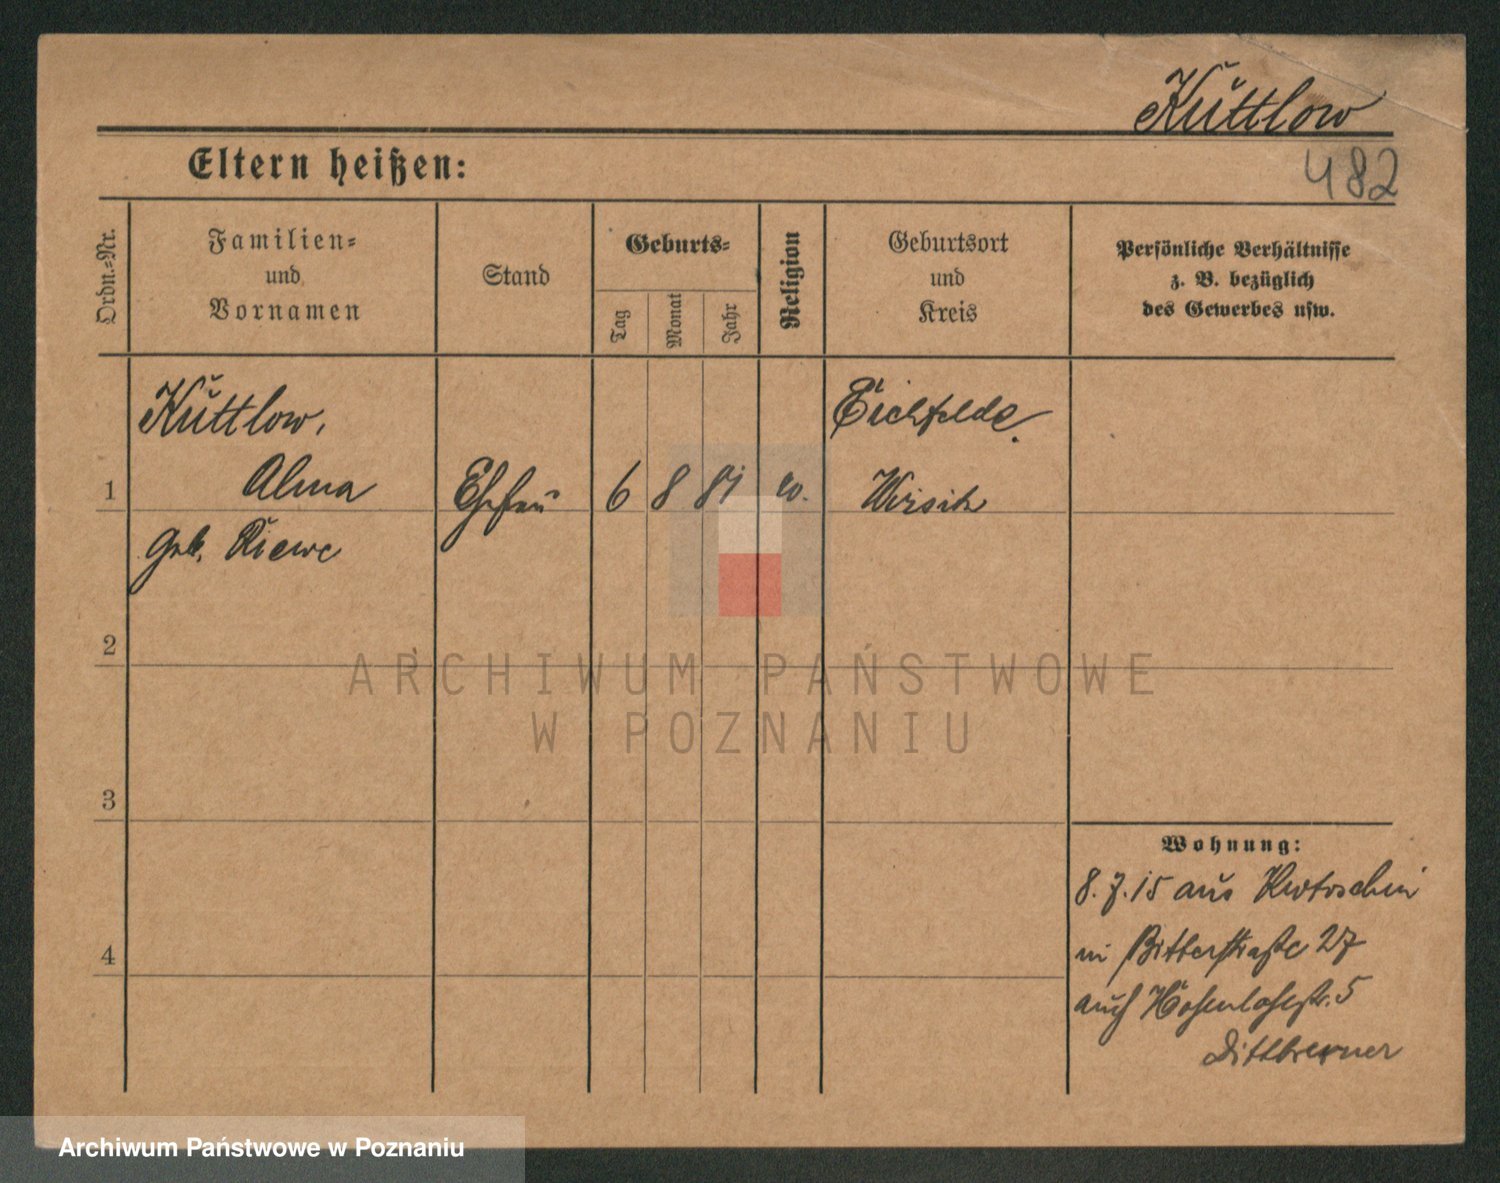 Kuttlow
482
Eltern heißen:
Ordn.-Nr.
Familien-
und
Vornamen
Stand
Geburts-
Tag
Monat
Jahr
Religion
Geburtsort
und
Kreis
Persönliche Verhältnisse
z. B. bezüglich
des Gewerbes usw.
1
Kuttlow,
Alma
geb. Riewe
Ehefrau
6 8 81
ev.
Eichfelde
Wirsitz
2
3
4
Wohnung:
8.7.15 aus Krotoschin
in Bitterstraße 27
auch Hohenlohestr. 5
Dittbrenner
ARCHIWUM PAŃSTWOWE
W POZNANIU
Archiwum Państwowe w Poznaniu